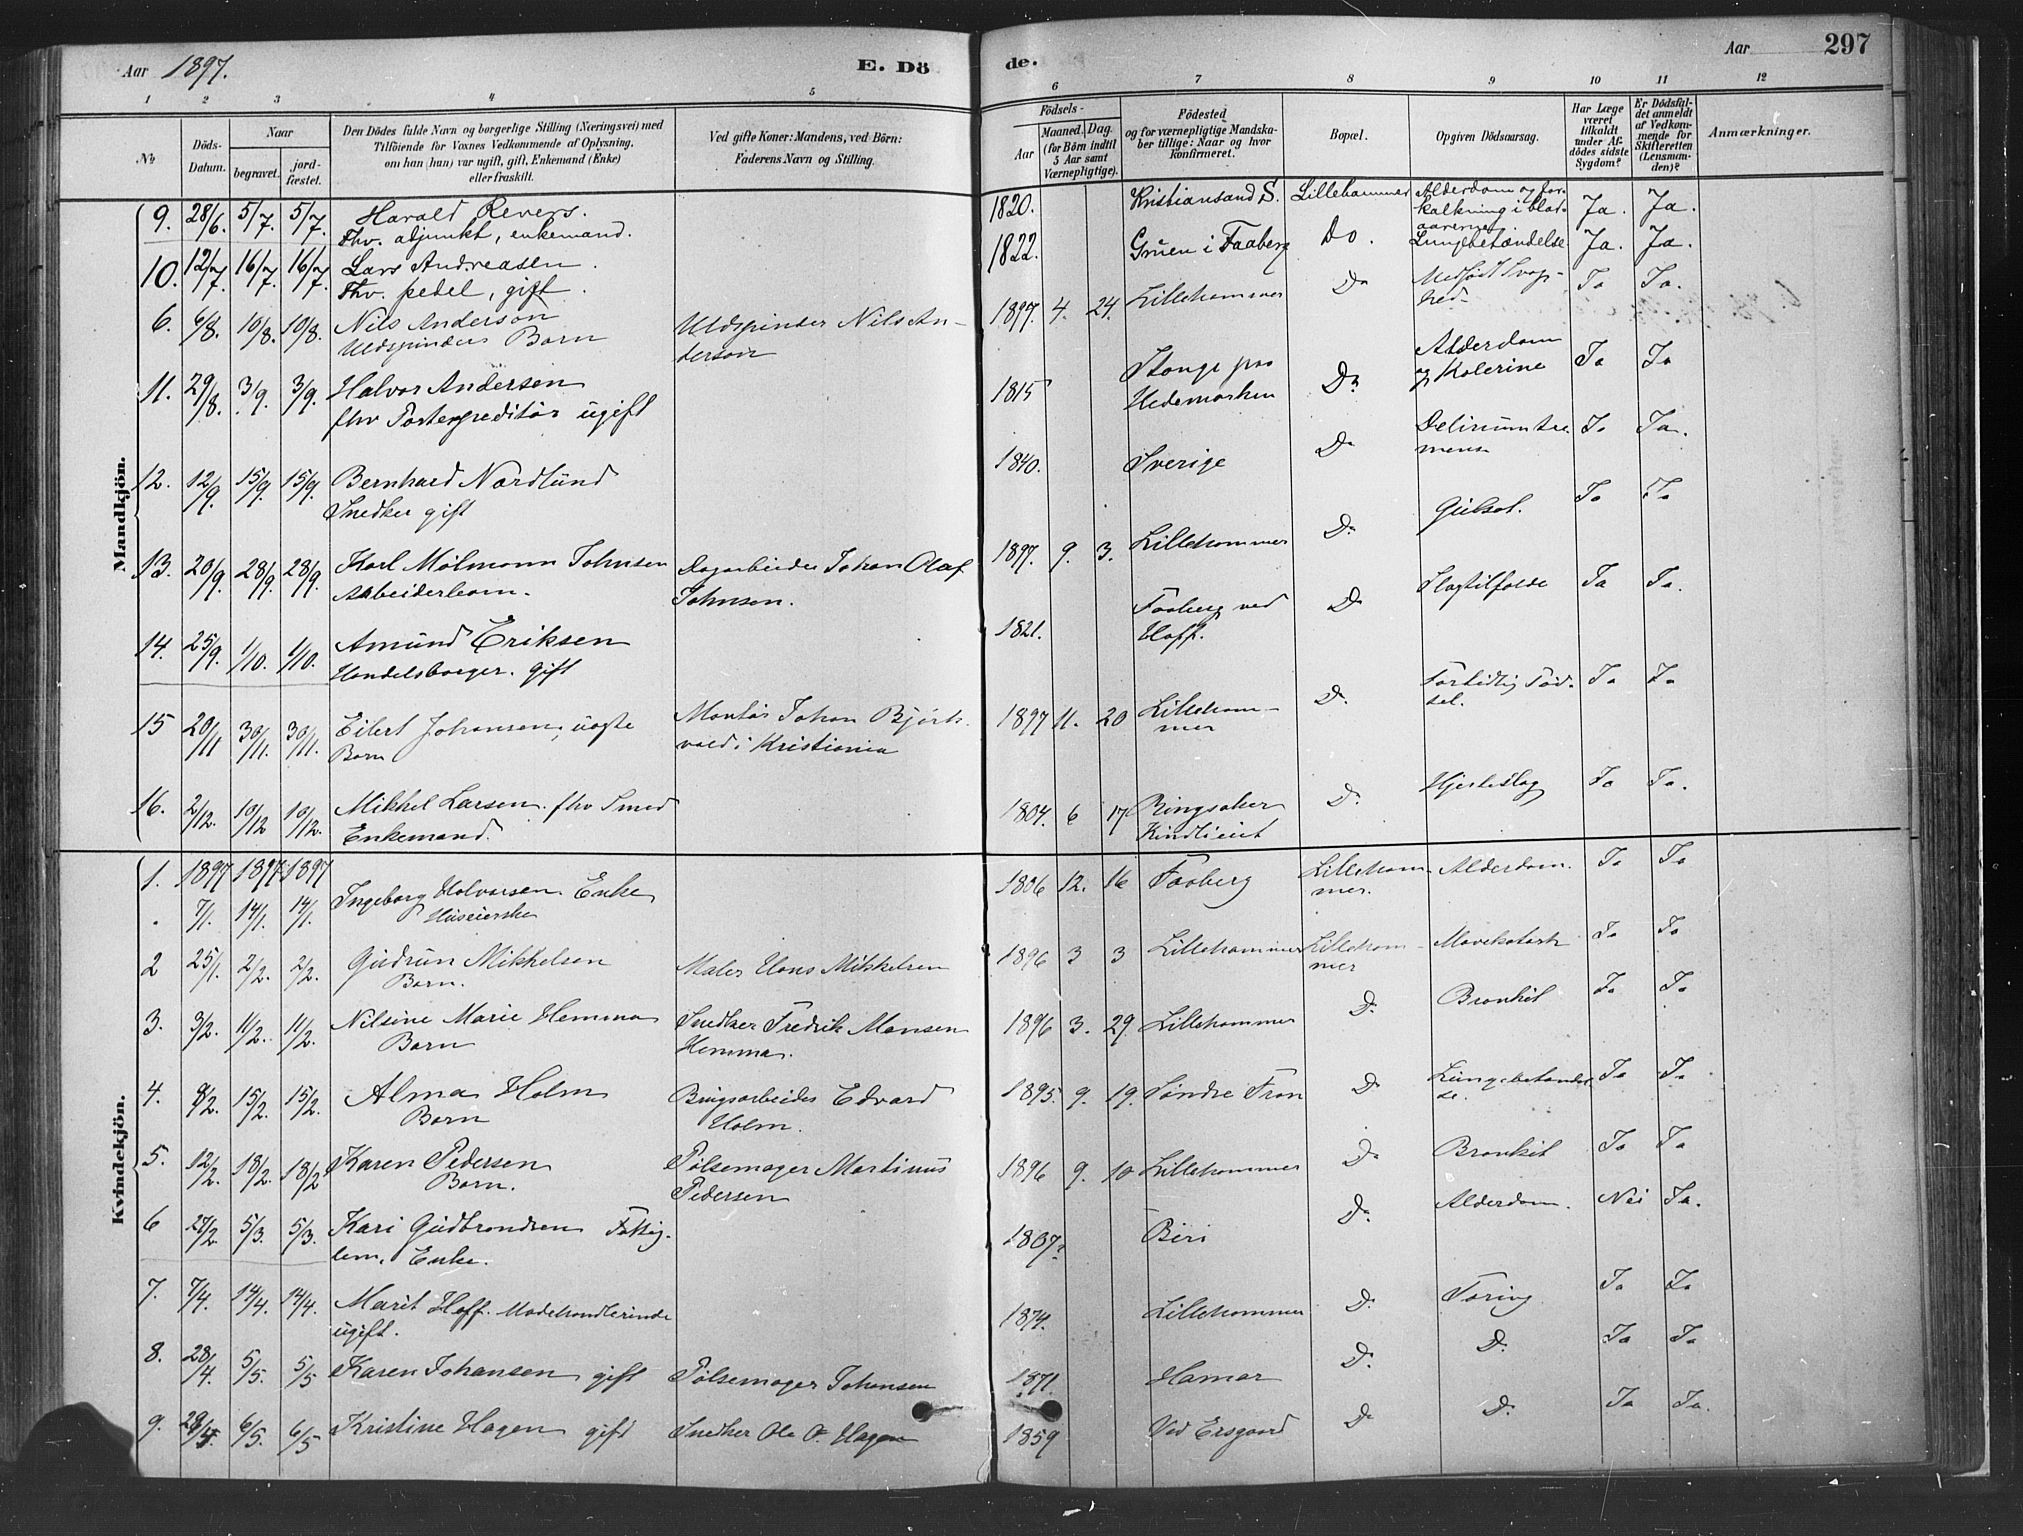 Aar 1897. E. Dö de. Aar 297
1 2 3 4 5 6 7 8 9 10 11 12
No
Döds-Datum.
Naar
begravet.
jordfæstet.
Den Dödes fulde Navn og borgerlige Stilling (Næringsvei) med
Tilföiende for Voxnes Vedkommende af Oplysning,
om han (hun) var ugift, gift, Enkemand (Enke)
eller fraskilt.
Ved gifte Koner: Mandens, ved Börn:
Faderens Navn og Stilling.
Födsels-
Aar
Maaned. Dag.
(for Börn indtil
5 Aar samt
Værnepligtige).
Födested
og for værnepligtige Mandska-
ber tillige: Naar og hvor
konfirmeret.
Bopæl.
Opgiven Dödsaarsag.
Har Læge
været
tilkaldt
under Af-
dödes sidste
Sygdom?
Er Dödsfal-
det anmeldt
af Vedkom-
mende for
Skifteretten
(Lensman-
den)?
Anmærkninger.
Mandkjön.
9. 28/6 5/7. 5/7. Harald Revers. 1820. Kristiansand S. Lillehammer Alderdom og for-
Fhv. adjunkt, enkemand. kalkning i blod-
aarerne. Ja. Ja.
10. 12/7. 16/7. 16/7. Lars Andreasen. 1822. Gruen i Faaberg Do. Lungebetændelse Ja. Ja.
Fhv. pedel, gift.
6. 6/8. 10/8. 10/8. Nils Anderson Uldspinder Nils An- 1897. 4. 24. Lillehammer Do Medfødt Svag- Ja Ja.
Uldspinders Barn derson hed
11. 29/8. 3/9. 3/9. Halvor Andersen 1815 Stange paa Do Alderdom Ja Ja
fhv Postexpeditør ugift Hedemarken og Kolerine
12. 12/9. 15/9. 15/9. Bernhard Nordlund 1840. Sverige Do Delirium tre- Ja Ja.
Snedker gift mens
13. 20/9. 28/9. 28/9. Karl Mølmann Johnsen Dagarbeider Johan Olaf 1897. 9. 3. Lillehammer Do. Gulsot. Ja Ja
Arbeiderbarn. Johnsen.
14. 25/9. 1/10. 1/10. Amund Eriksen 1821. Faaberg ved Do Slagtilfælde Ja Ja.
Handelsborger. gift Hoff.
15 20/11 30/11. 30/11. Eilert Johansen, uægte Montør Johan Bjørk- 1897 11. 20 Lilleham- Do. For tidlig Fød- Ja Ja
Barn vold i Kristiania mer sel.
16. 2/12. 10/12 10/12. Mikkel Larsen. fhv Smed 1804. 6 17 Ringsaker Do. Hjerteslag Ja Ja.
Enkemand.
Kvindekjön.
1. 1897 1897 1897
7/1. 14/1. 14/1. Ingeborg Halvorsen Enke 1806 12. 16 Faaberg Lilleham- Alderdom. Ja Ja
Huseierske mer.
2 25/1. 2/2. 2/2. Gudrun Mikkelsen Maler Hans Mikkelsen 1896 3 3 Lillehammer Lilleham- Mavekatarh Ja Ja
Barn. mer
3. 3/2. 11/2. 11/2. Nilsine Marie Hemma Snedker Fredrik Mansen 1896 3. 29. Lillehammer Do. Bronkit Ja Ja
Barn Hemma.
4. 8/2. 15/2. 15/2. Alma Holm Brugsarbeider Edvard 1895. 9. 19. Søndre Fron Do Lungebetændel- Ja Ja
Barn Holm. se.
5. 12/2. 18/2. 18/2 Karen Pedersen Pølsemager Martinus 1896 9. 10 Lillehammer Do Bronkit Ja Ja
Barn. Pedersen
6 27/2. 5/3. 5/3. Kari Gudbrandsen Fattig- 1807? Biri Do. Alderdom. Nei Ja.
lem. Enke.
7. 7/4. 14/4. 14/4. Marit Hoff. Modehandlerinde 1874. Lillehammer Do. Tæring Ja Ja
ugift.
8. 28/4. 5/5. 5/5 Karen Johansen gift Pølsemager Johansen 1871. Hamar Do. Do. Ja Ja
9. 29/4. 6/5. 6/5 Kristine Hagen gift Snedker Ole O. Hagen 1859 Ved Ersgaard Do Do. Ja Ja.